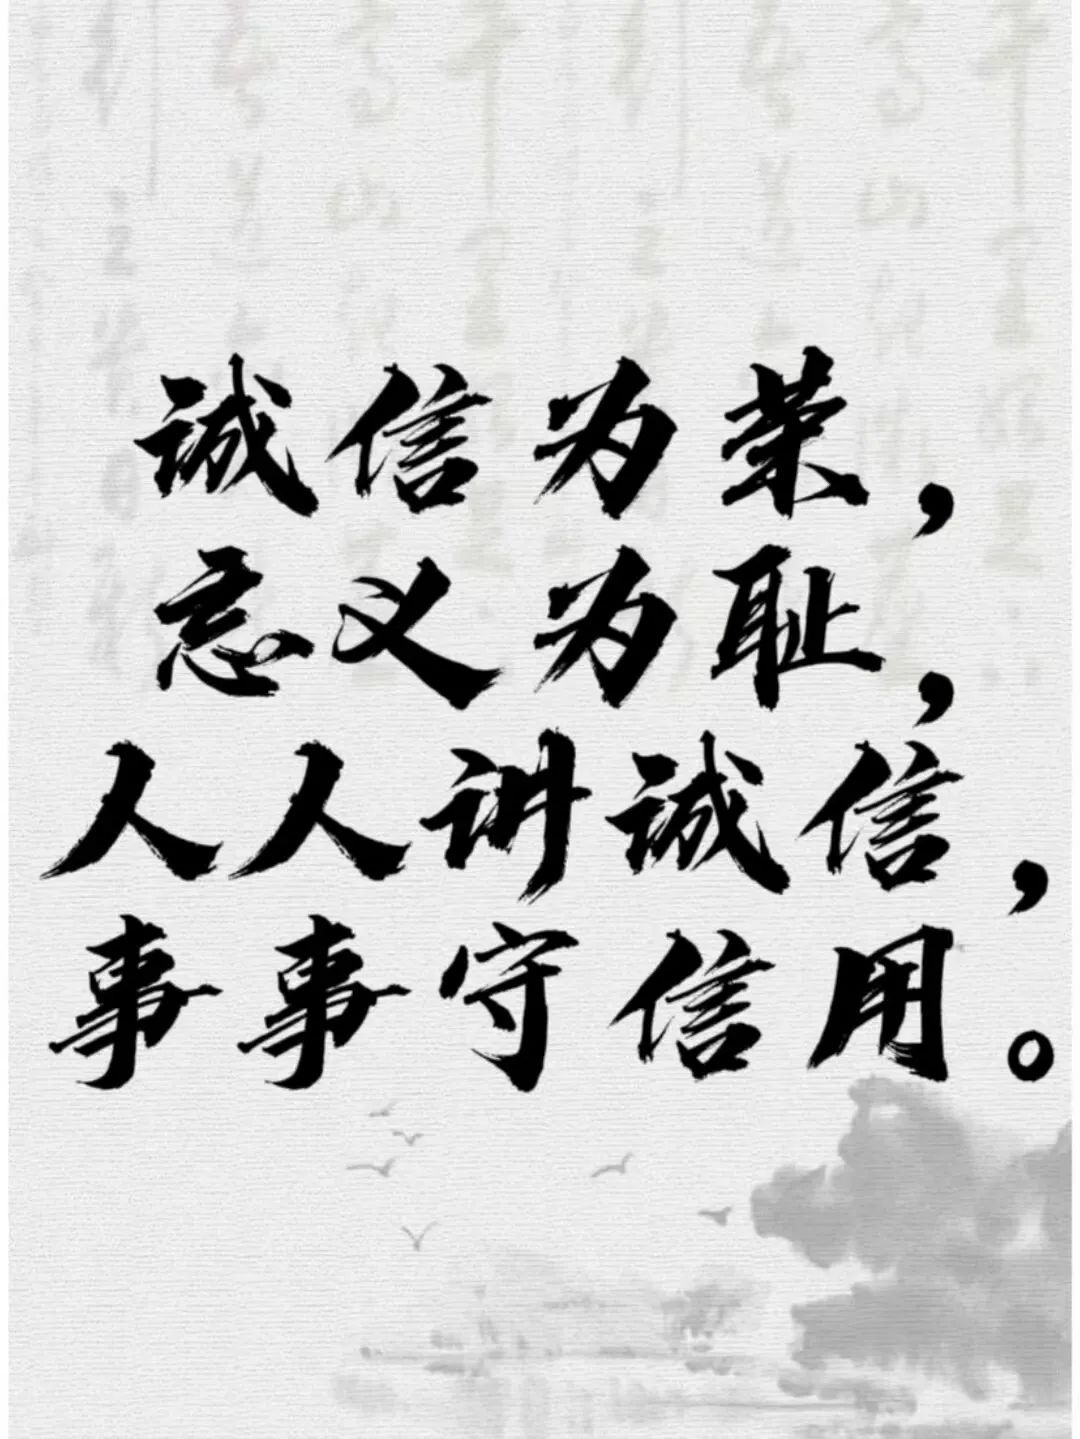 诚信为荣，
忘义为耻，
人人讲诚信，
事事守信用。